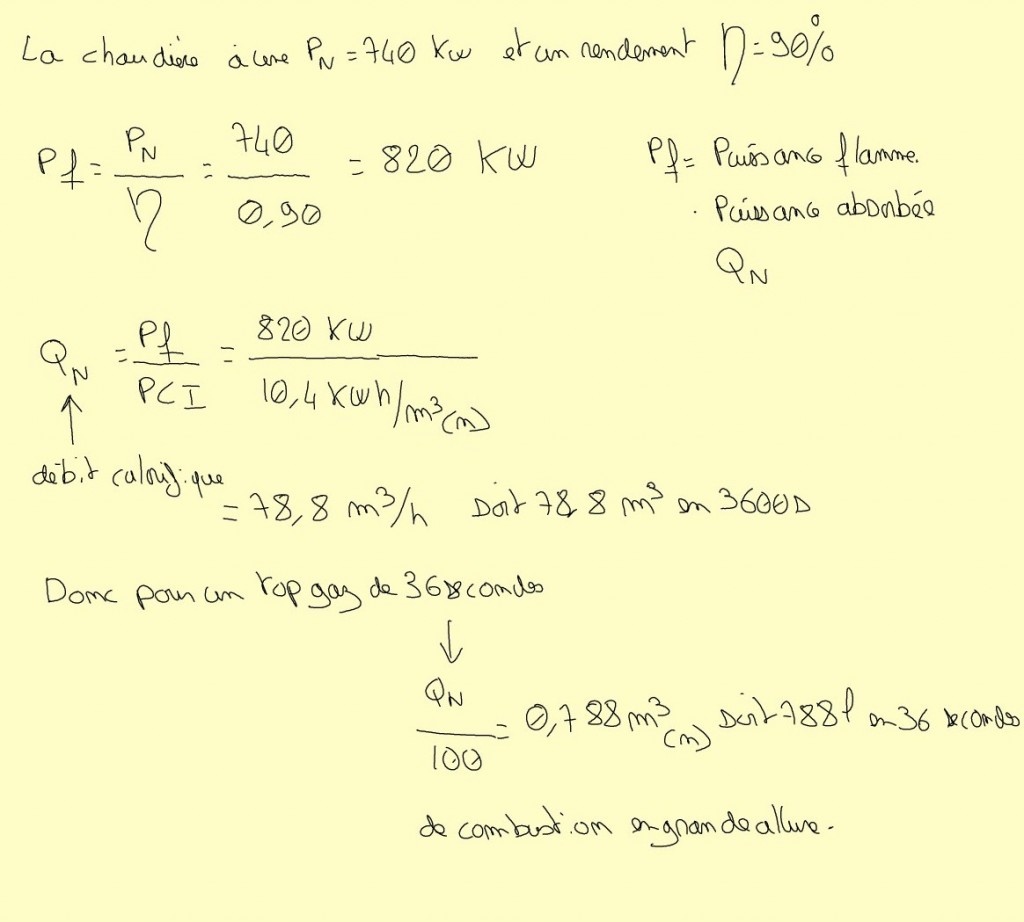 La chaudière à une PN = 740 Kw et un rendement η = 90%
Pf = PN / η = 740 / 0,90 = 820 KW
Pf = Puissance flamme.
. Puissance absorbée
QN
QN = Pf / PCI = 820 KW / 10,4 KWh/m³(n)
↑
débit calorifique
= 78,8 m³/h soit 78,8 m³ en 3600s
Donc pour un top gaz de 36 secondes
↓
QN / 100 = 0,788 m³(n) soit 788 l en 36 secondes
de combustion en grande allure.